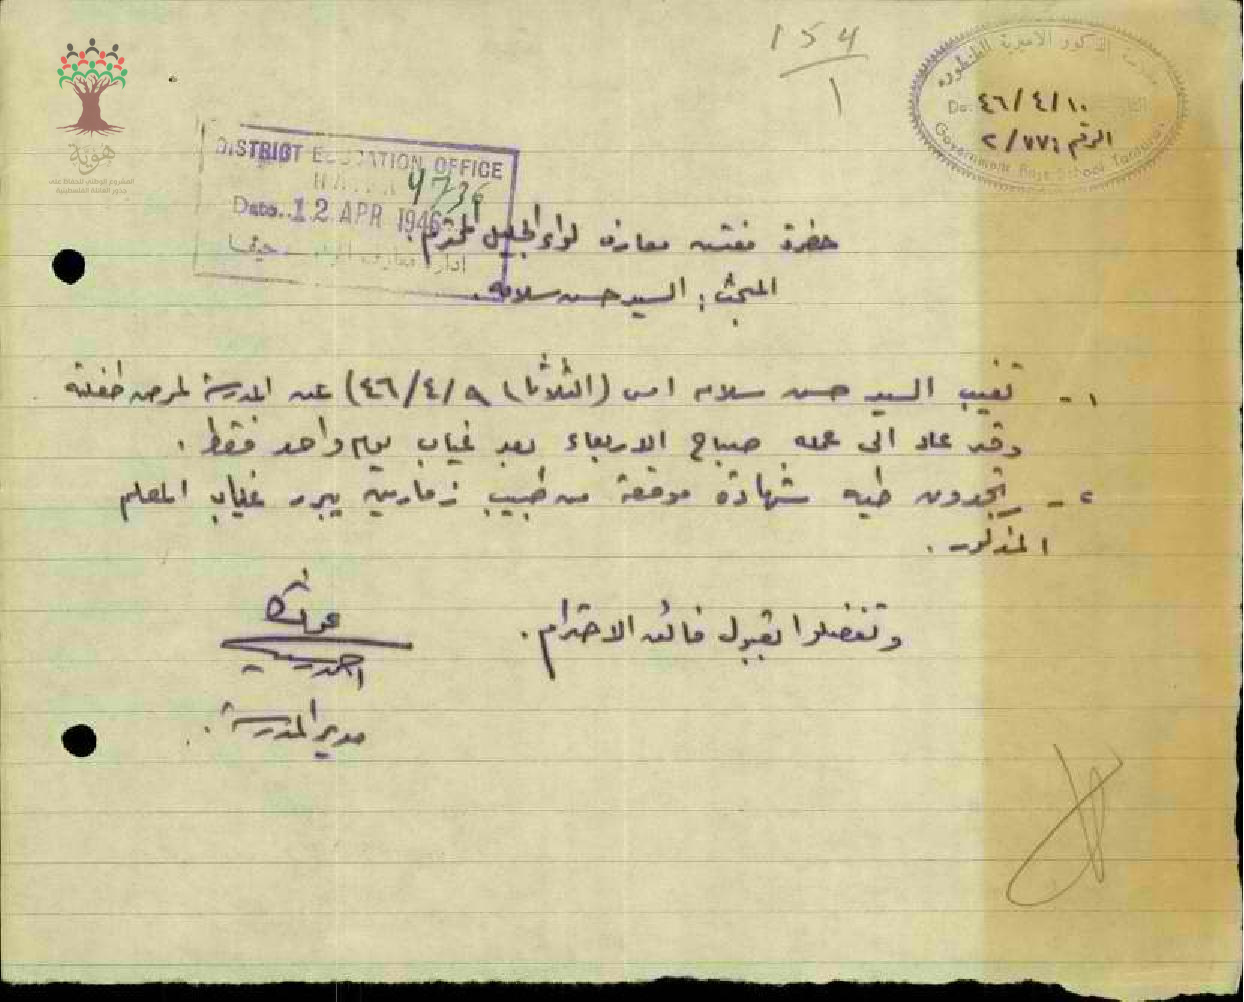 154
1
مدرسة الذكور الأميرية الطنطورة
٤٦/٤/١٠
الرقم ٢/٧٧٦
Government Boys School Tantura
هوية
المشروع الوطني للحفاظ على
جذور العائلة الفلسطينية
DISTRICT EDUCATION OFFICE
HAIFA 4736
Date.. 12 APR 1946
ادارة معارف حيفا
حضرة مفتش معارف لواء الجليل المحترم.
المبحث : السيد حسن سلامه.
١- تغيب السيد حسن سلامه امس (الثلاثاء ٤٦/٤/٩) عن المدرسة لمرض طفلته
وقد عاد الى عمله صباح الاربعاء بعد غياب يوم واحد فقط .
٢- تجدون طيه شهادة موقعة من طبيب زمارين يبرر غياب المعلم
المذكور .
وتفضلوا بقبول فائق الاحترام .
مدير المدرسة .